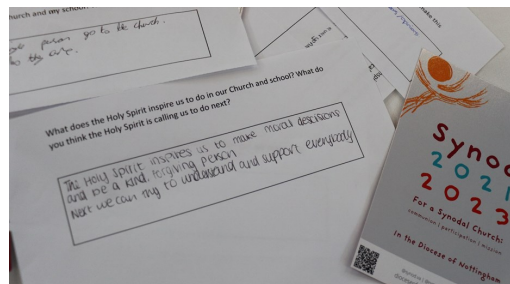 urch and my school.
person go to the church.
make this
What does the Holy Spirit inspire us to do in our Church and school? What do
you think the Holy Spirit is calling us to do next?
The Holy Spirit inspires us to make moral descisions
and be a kind, forgiving person
Next we can try to understand and support everybody
Synod
2021
2023
For a Synodal Church:
communion | participation | mission
In the Diocese of Nottingham